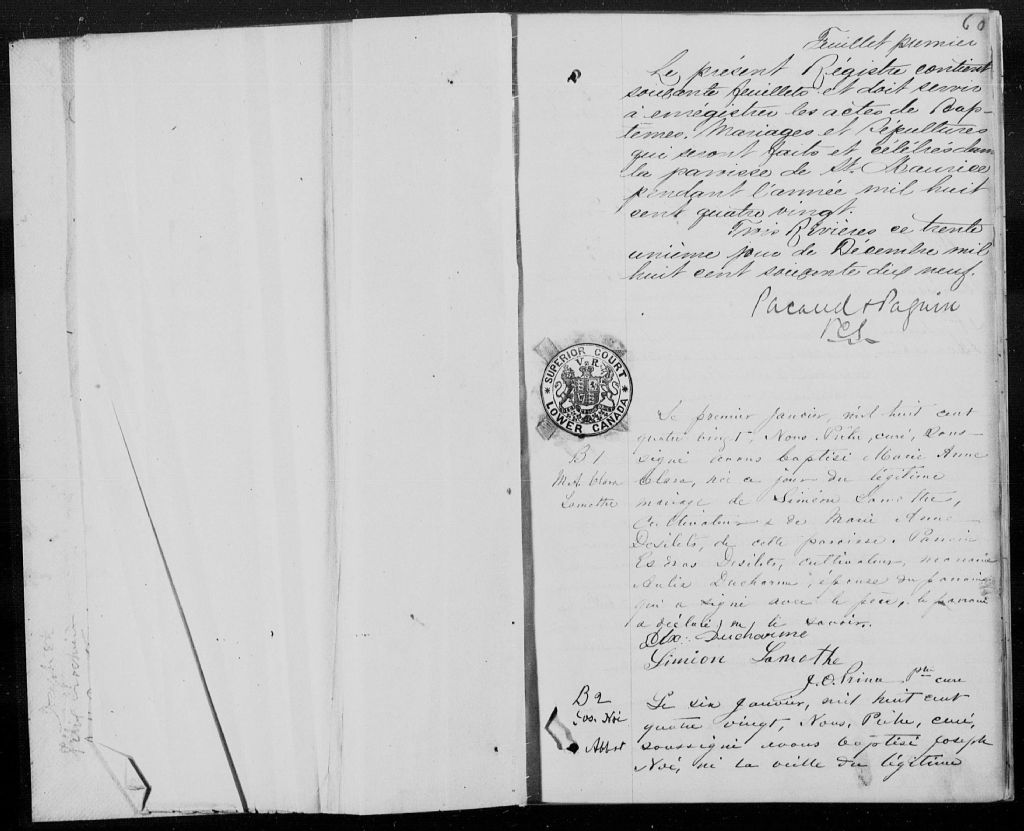 60
Feuillet premier
Le présent Régistre contient
soixante feuillets et doit servir
à enrégistrer les actes de Bap-
têmes, Mariages et Sépultures
qui seront faits et célébrés dans
la paroisse de St. Maurice
pendant l'année mil huit
cent quatre vingt.
Trois Rivières ce trente
unième jour de Décembre mil
huit cent soixante dix neuf.
Pacaud & Paquin
P.C.S.
SUPERIOR COURT
V R
LOWER CANADA
B 1
M. A. Clara
Lamothe
Le premier Janvier, mil huit cent
quatre vingt, Nous, Prêtre, curé, Sous-
signé avons baptisé Marie Anne
Clara, née ce jour du légitime
mariage de Siméon Lamothe,
Cultivateur & de Marie Anne
Desilets, de cette paroisse. Parrain
Esdras Desilets, cultivateur, marraine
Ducharme, épouse du parrain
qui a signé avec le père, le parrain
a déclaré ne le savoir.
Ducharme
Siméon Lamothe
J. O. Prince Ptre curé
B 2
Jos. Noé
Le six Janvier, mil huit cent
quatre vingt, Nous, Prêtre, curé,
soussigné avons baptisé Joseph
Noé, né la veille du légitime